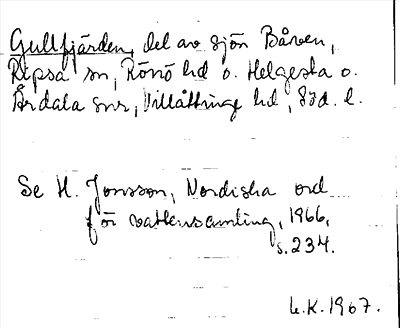 Gullfjärden, del av sjön Båven,
Ripsa sn, Rönö hd o. Helgesta o.
Årdala snr, Villåttinge hd, Söd. l.
Se H. Jonsson, Nordiska ord
för vattensamling, 1966,
s. 234.
L.K. 1967.